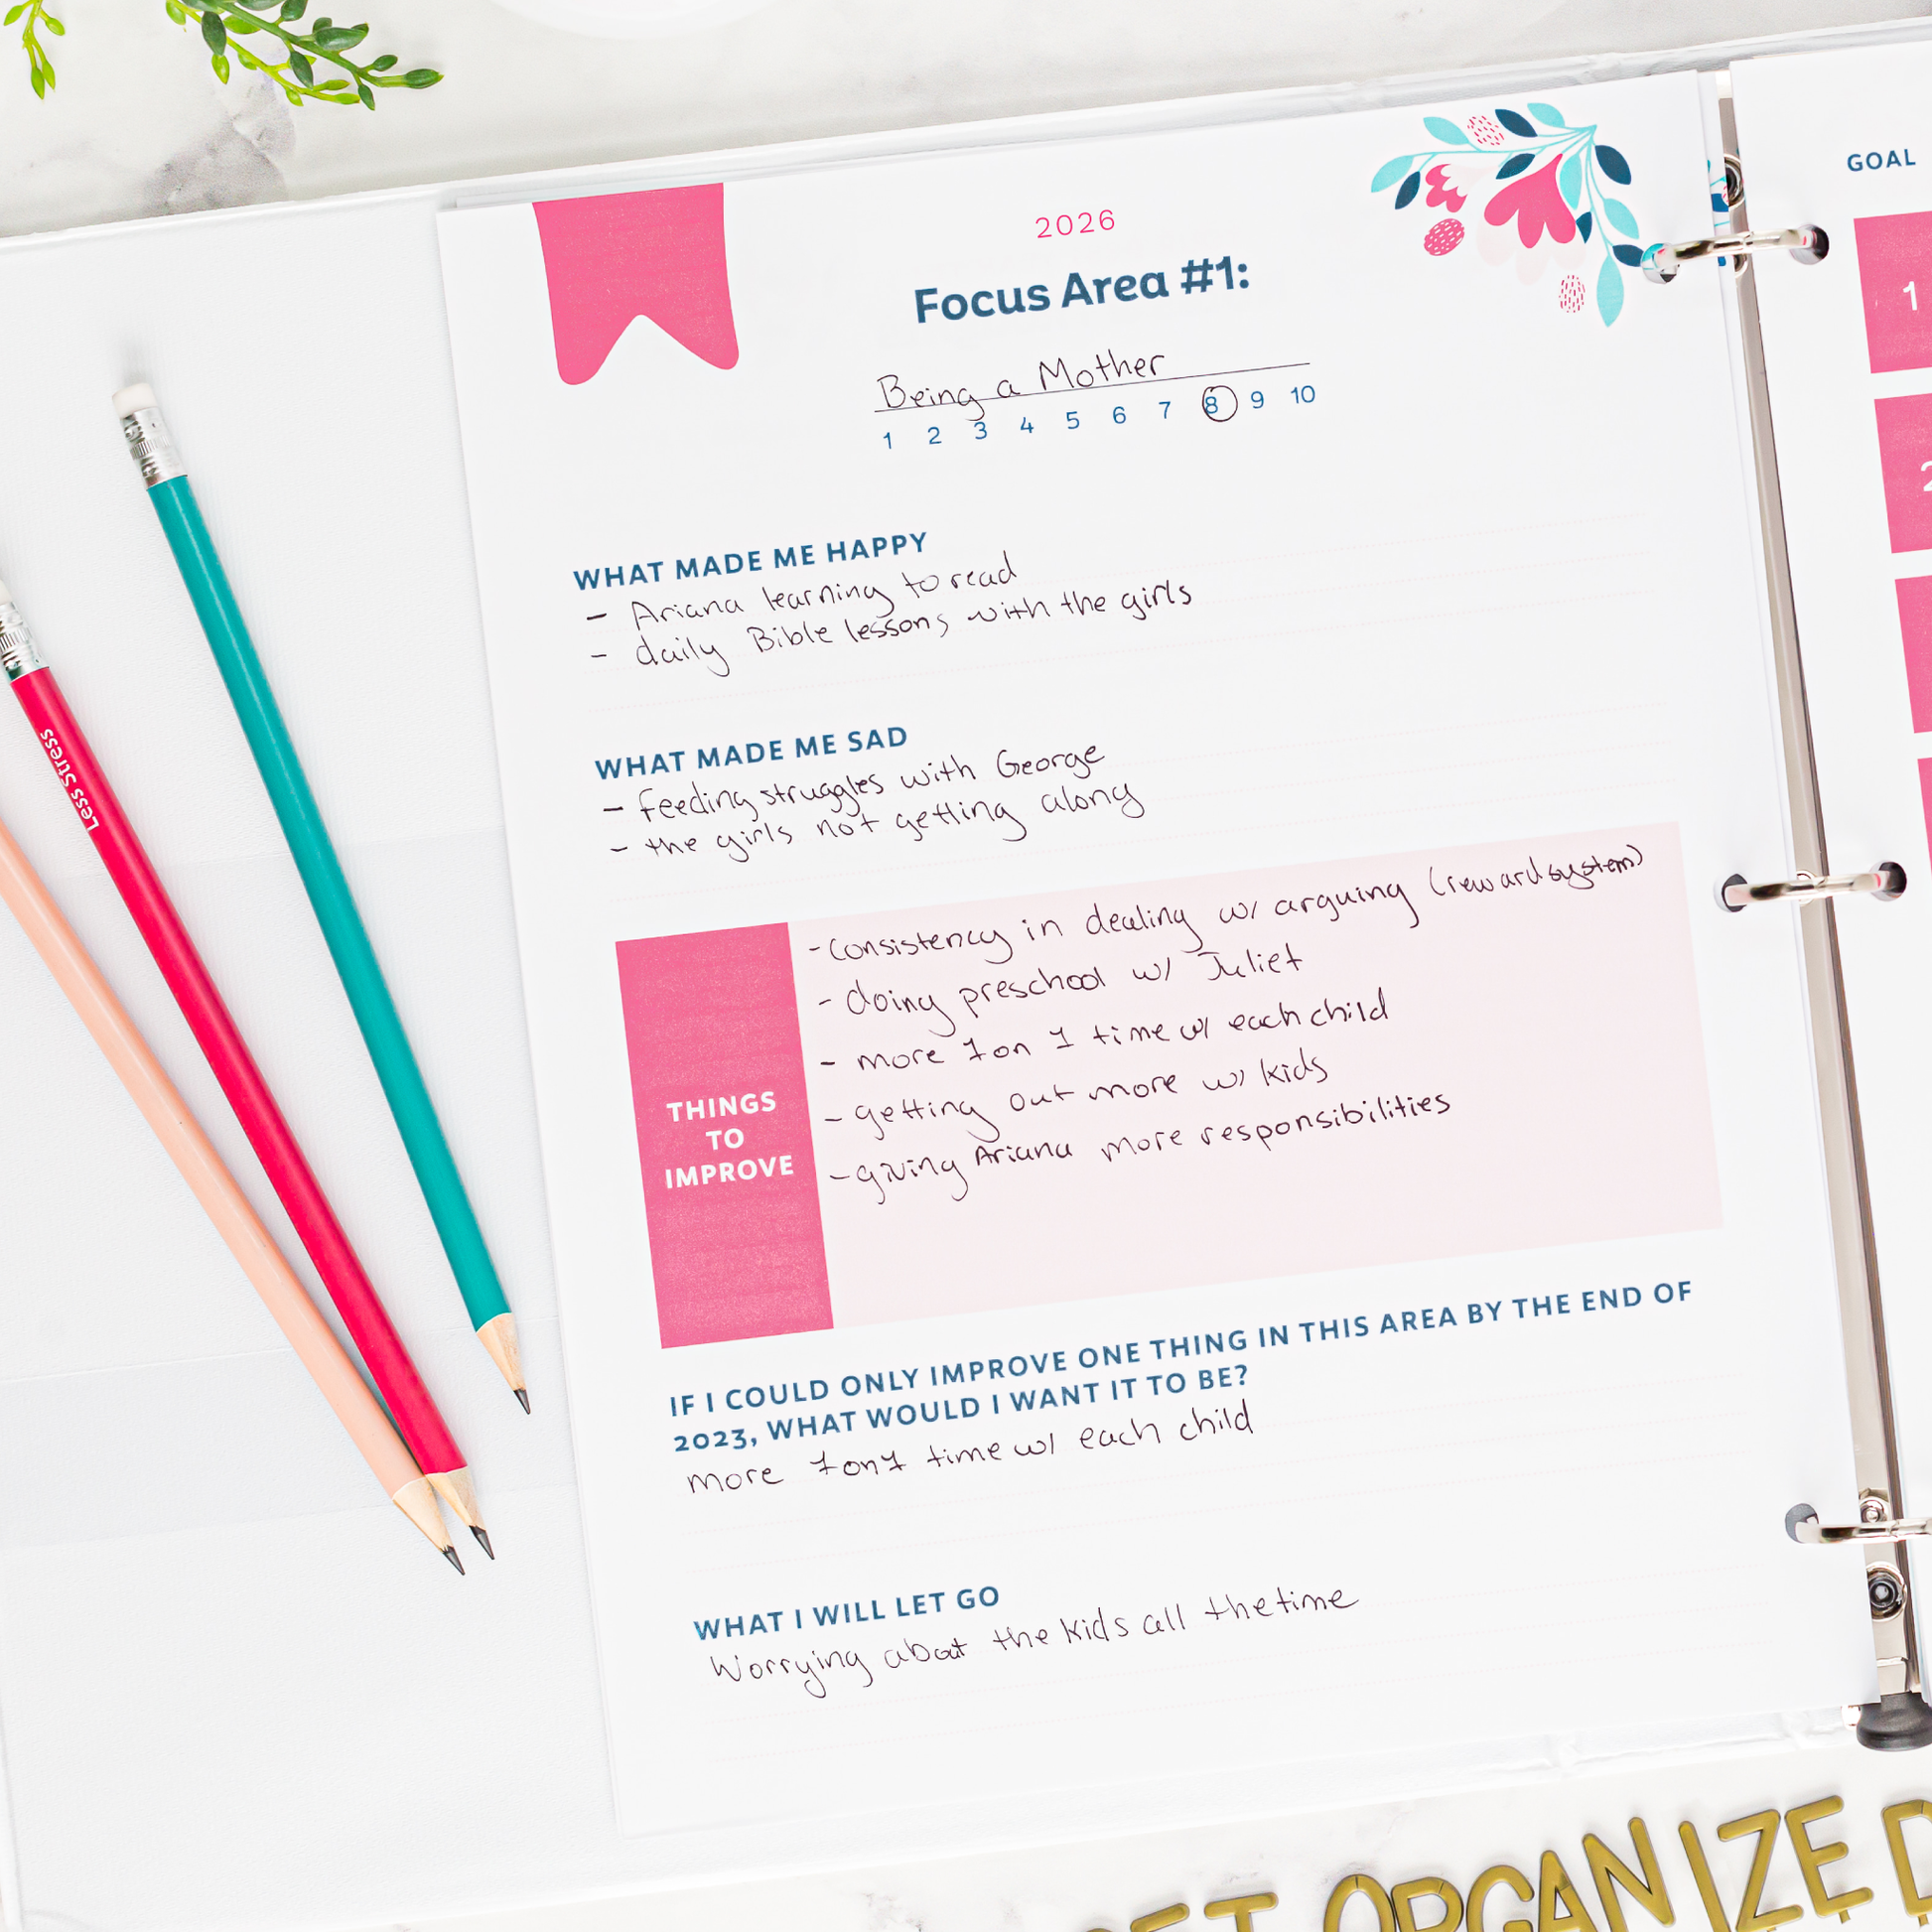 2026
Focus Area #1:
Being a Mother
1 2 3 4 5 6 7 8 9 10
WHAT MADE ME HAPPY
- Ariana learning to read
- daily Bible lessons with the girls
WHAT MADE ME SAD
- feeding struggles with George
- the girls not getting along
THINGS
TO
IMPROVE
- Consistency in dealing w/ arguing (reward system)
- doing preschool w/ Juliet
- more 1 on 1 time w/ each child
- getting out more w/ kids
- giving Ariana more responsibilities
IF I COULD ONLY IMPROVE ONE THING IN THIS AREA BY THE END OF
2023, WHAT WOULD I WANT IT TO BE?
more 1on1 time w/ each child
WHAT I WILL LET GO
Worrying about the kids all the time
Less Stress
GOAL
1
2
ET ORGANIZED